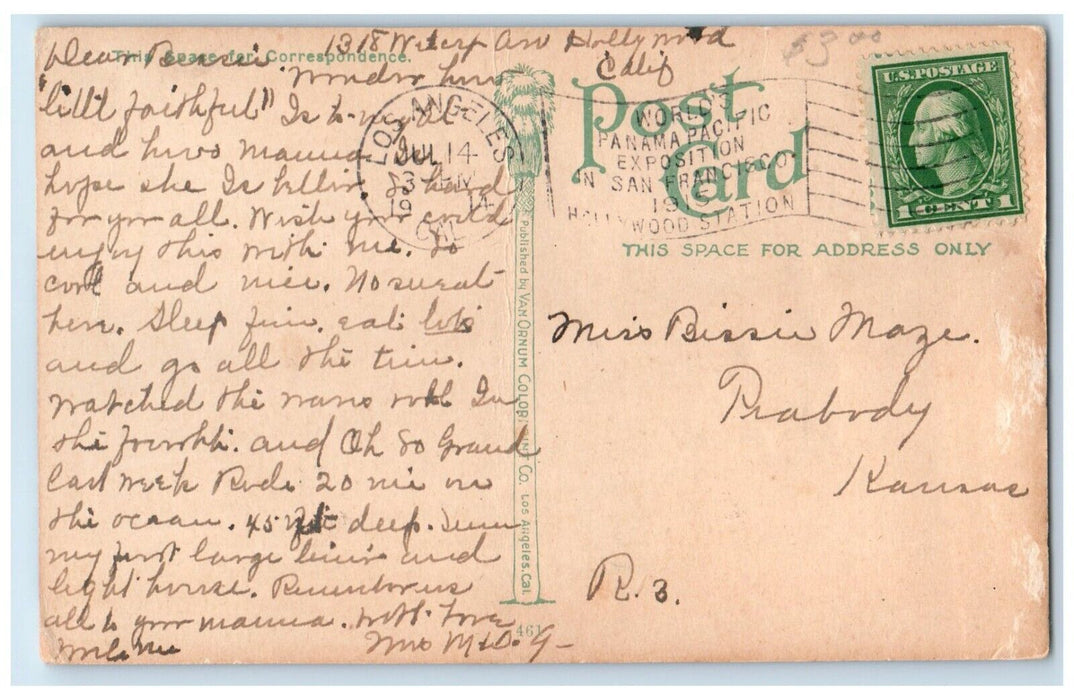 This Space for Correspondence.
1318 Hollywood
Calif
Dear Bessie. Wonder how
"little faithful" Is to-night
and how's Mamma
hope she Is better So hard
for you all. Wish you could
enjoy this with me. So
cool and nice. No sweat
here. Sleep fine. eat lots
and go all the time.
watched the waves roll In
the fourth. and Oh So Grand
last week Rode 20 mi on
the ocean. 45 deep. Seen
my first large liner and
light house. Remember us
all to your mamma. With Love
Write me Mrs M. D. G-
$3.00
LOS ANGELES
JUL 14
3 PM
1914
CAL.
WORLD'S
PANAMA PACIFIC
EXPOSITION
IN SAN FRANCISCO
1915
HOLLYWOOD STATION
Post
Card
U.S. POSTAGE
1 CENT 1
THIS SPACE FOR ADDRESS ONLY
Published by VAN ORNUM COLORPRINT CO. LOS Angeles, Cal.
461
Miss Bissie Maze.
Peabody
Kansas
R. 3.